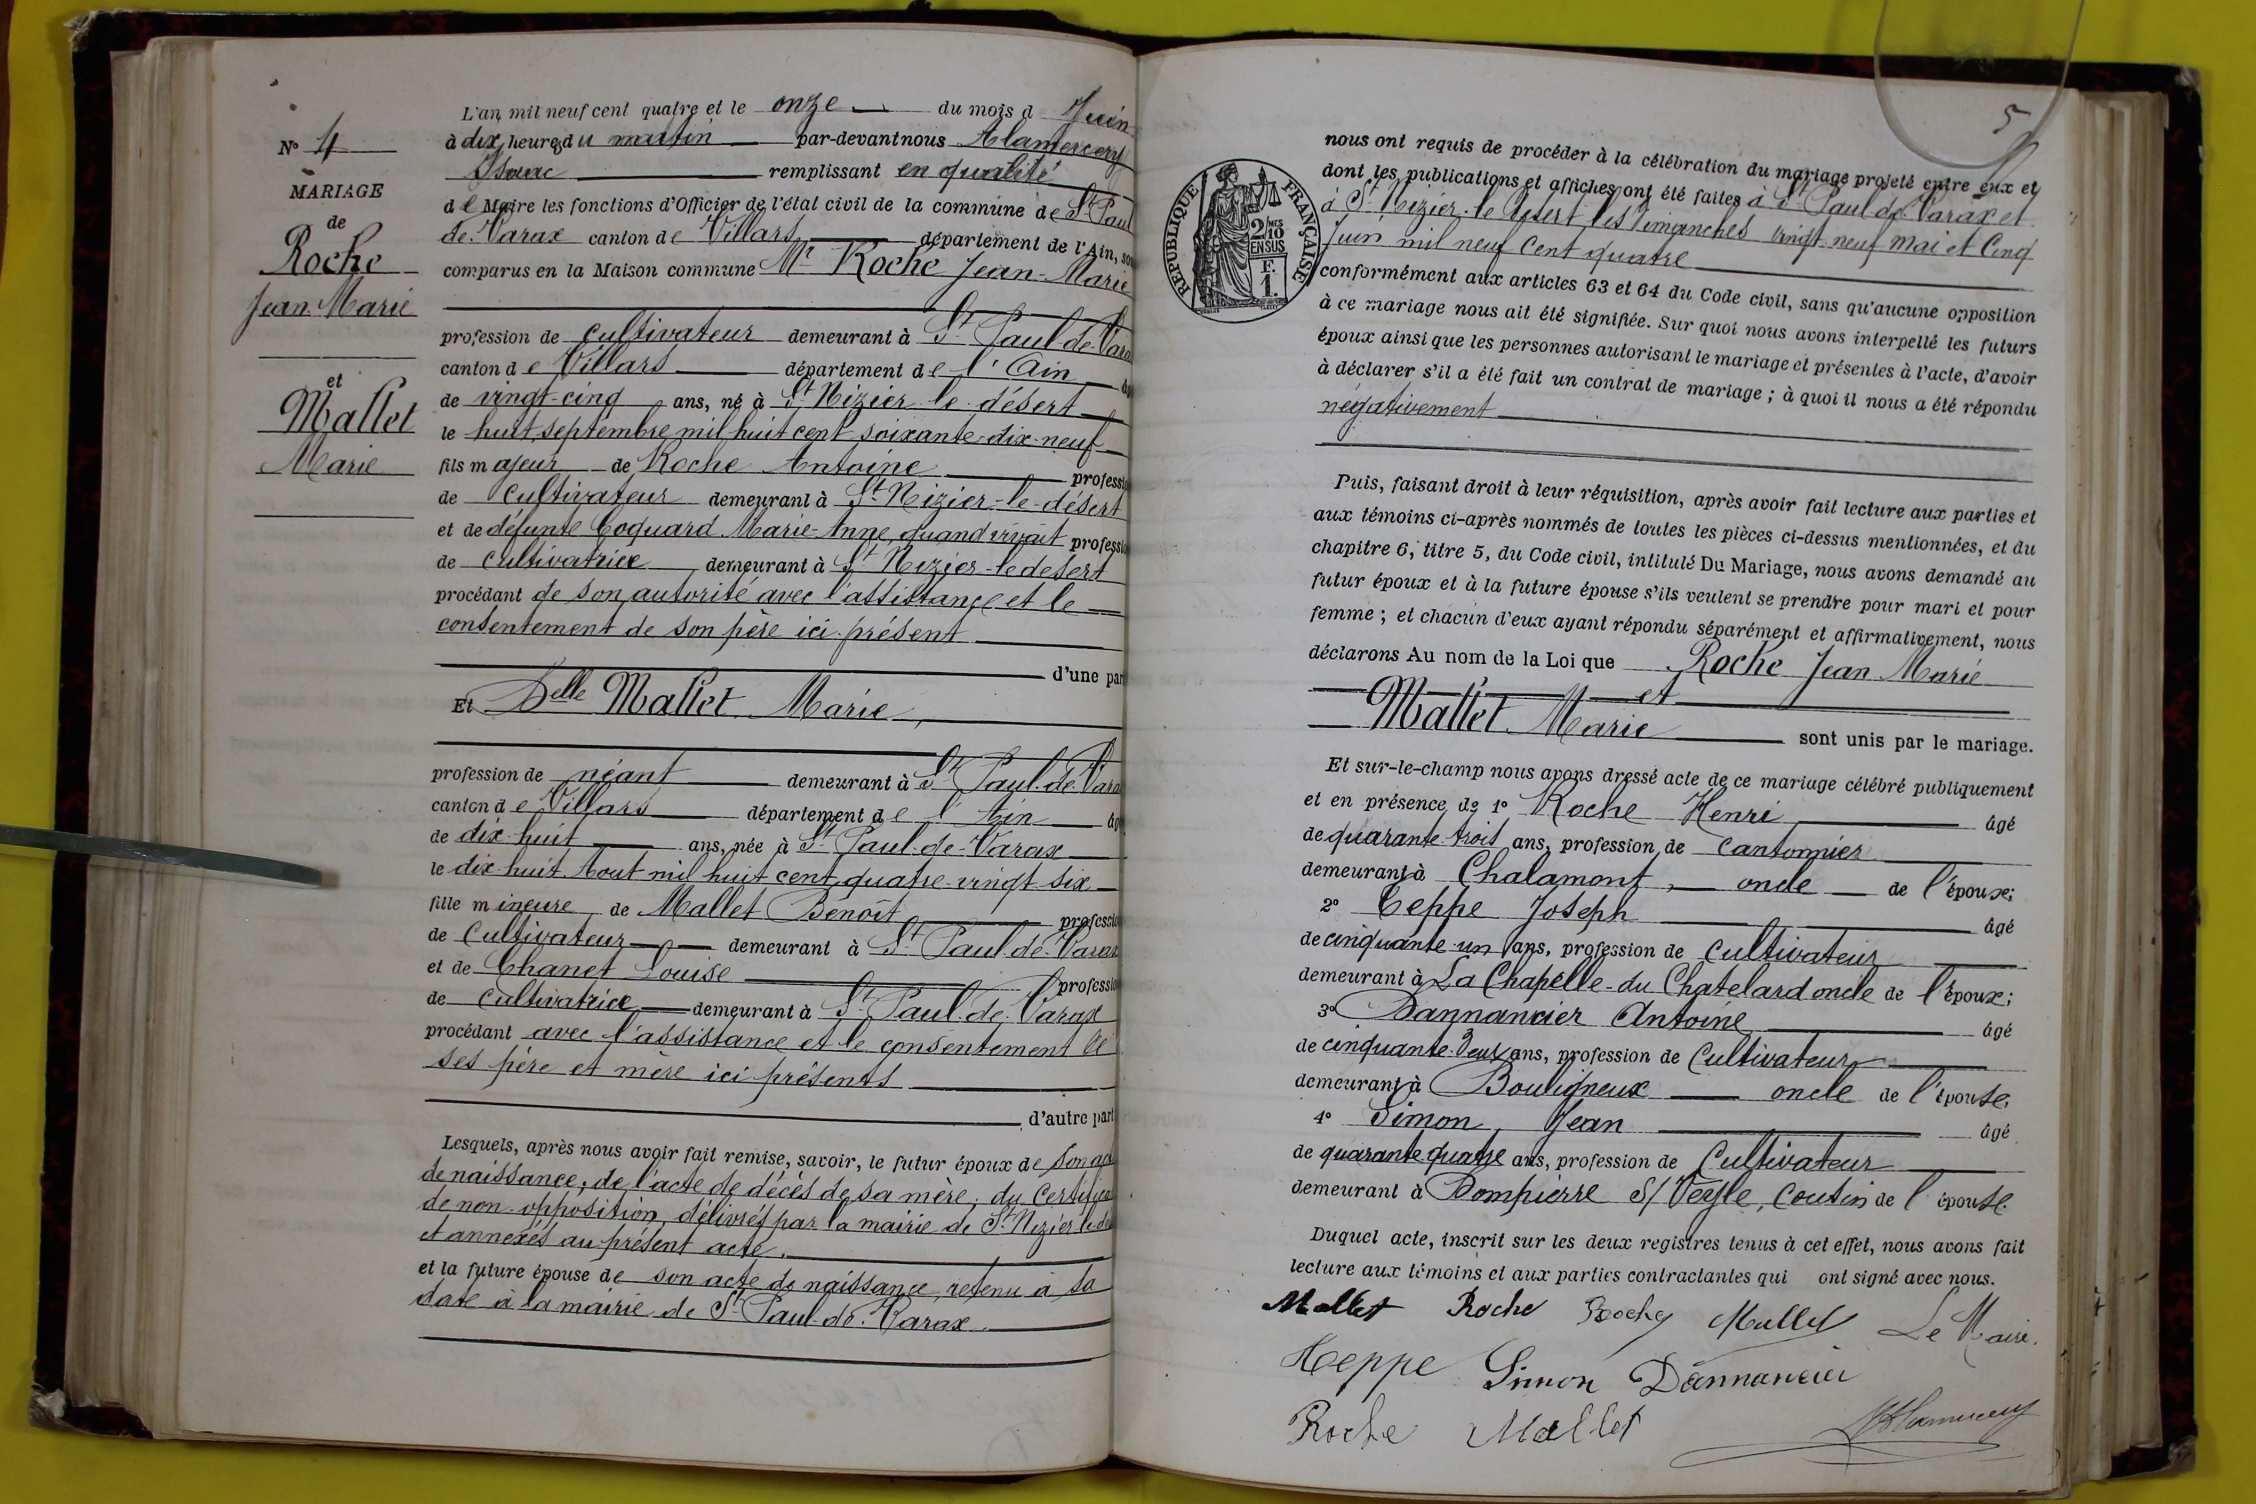 L'an mil neuf cent quatre et le onze du mois d Juin
à dix heures du matin par-devant nous Alamercery
Isaac remplissant en qualité
de Maire les fonctions d'Officier de l'état civil de la commune de St Paul
de Varax canton de Villars département de l'Ain, son
comparus en la Maison commune Mr Roche Jean-Marie
profession de cultivateur demeurant à St Paul-de-Vara
canton de Villars département de l'Ain âg
de vingt-cinq ans, né à St Nizier-le-désert
le huit septembre mil huit cent soixante-dix-neuf
fils majeur de Roche Antoine professi
de cultivateur demeurant à St Nizier-le-désert
et de défunte Coquard Marie-Anne, quand vivait professi
de cultivatrice demeurant à St Nizier-le désert
procédant de son autorité avec l'assistance et le
consentement de son père ici présent
d'une par
Et Delle Mallet Marie,
profession de néant demeurant à St Paul-de-Vara
canton de Villars département de l'Ain âg
de dix-huit ans, née à St Paul-de-Varax
le dix-huit Aout mil huit cent quatre-vingt-six
fille mineure de Mallet Benoît professio
de Cultivateur demeurant à St Paul-de-Varax
et de Chanet Louise professio
de cultivatrice demeurant à St Paul-de-Varax
procédant avec l'assistance et le consentement de
ses père et mère ici présents
d'autre part
Lesquels, après nous avoir fait remise, savoir, le futur époux de son ac
de naissance, de l'acte de décès de sa mère, du certifica
de non-opposition, délivrés par la mairie de St Nizier le dé
et annexés au présent acte.
et la future épouse de son acte de naissance, retenu à sa
date à la mairie de St Paul-de-Varax.
No 4
MARIAGE
de
Roche
Jean Marie
et
Mallet
Marie
5
RÉPUBLIQUE FRANÇAISE
2/10
EN SUS
F.
1.
nous ont requis de procéder à la célébration du mariage projeté entre eux et
dont les publications et affiches ont été faites à St Paul-de-Varax et
à St Nizier-le Désert les Dimanches vingt-neuf mai et Cinq
Juin mil neuf Cent quatre
conformément aux articles 63 et 64 du Code civil, sans qu'aucune opposition
à ce mariage nous ait été signifiée. Sur quoi nous avons interpellé les futurs
époux ainsi que les personnes autorisant le mariage et présentes à l'acte, d'avoir
à déclarer s'il a été fait un contrat de mariage ; à quoi il nous a été répondu
négativement
Puis, faisant droit à leur réquisition, après avoir fait lecture aux parties et
aux témoins ci-après nommés de toutes les pièces ci-dessus mentionnées, et du
chapitre 6, titre 5, du Code civil, intitulé Du Mariage, nous avons demandé au
futur époux et à la future épouse s'ils veulent se prendre pour mari et pour
femme ; et chacun d'eux ayant répondu séparément et affirmativement, nous
déclarons Au nom de la Loi que Roche Jean Marie
et
Mallet Marie sont unis par le mariage.
Et sur-le-champ nous avons dressé acte de ce mariage célébré publiquement
et en présence de 1o Roche Henri âgé
de quarante-trois ans, profession de Cantonnier
demeurant à Chalamont, oncle de l'époux;
2o Ceppe Joseph âgé
de cinquante-un ans, profession de cultivateur
demeurant à La Chapelle-du Chatelard oncle de l'époux;
3o Dannancier Antoine âgé
de cinquante-deux ans, profession de Cultivateur
demeurant à Bouligneux oncle de l'épouse,
4o Simon Jean âgé
de quarante quatre ans, profession de Cultivateur
demeurant à Dompierre s/ Veyle, cousin de l'épouse.
Duquel acte, inscrit sur les deux registres tenus à cet effet, nous avons fait
lecture aux témoins et aux parties contractantes qui ont signé avec nous.
Mallet Roche Roche Mallet Le Maire.
Ceppe Simon Dannancier
Roche Mallet